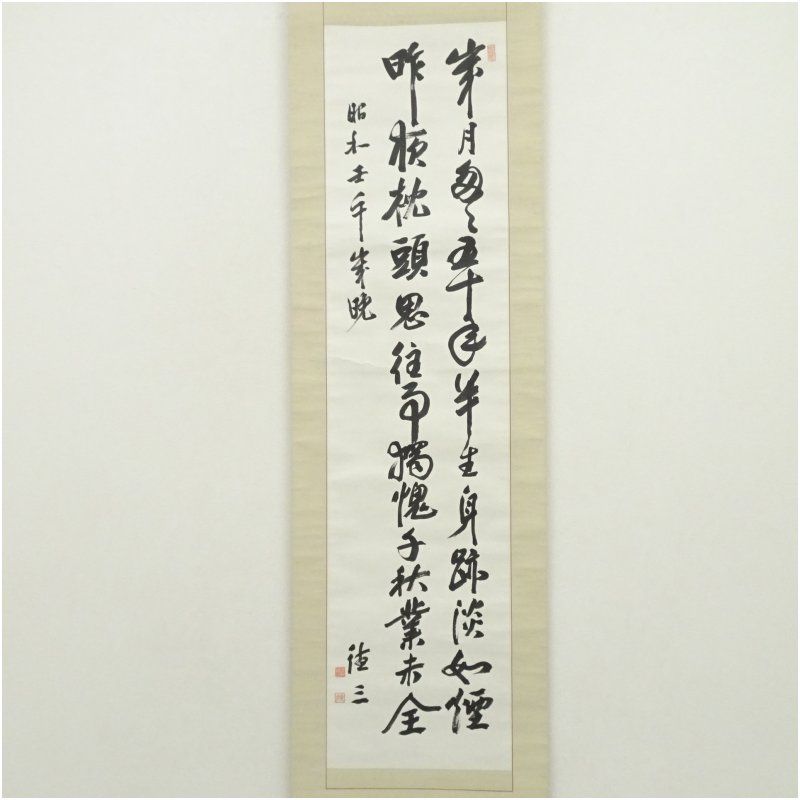 歳月匆々五十年半生身跡淡如煙
昨夜枕頭思往事獨愧千秋業未全
昭和壬午歳晩
三